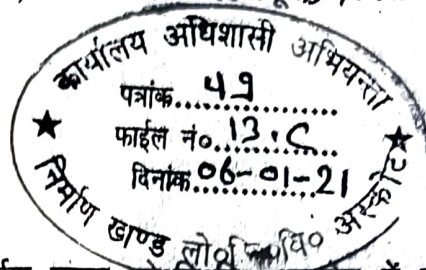 कार्यालय अधिशासी अभियन्ता
पत्रांक....49..............
फाईल नं०.13.C..........
दिनांक.06-01-21
★ ★
निर्माण खण्ड लो० अस्कोट